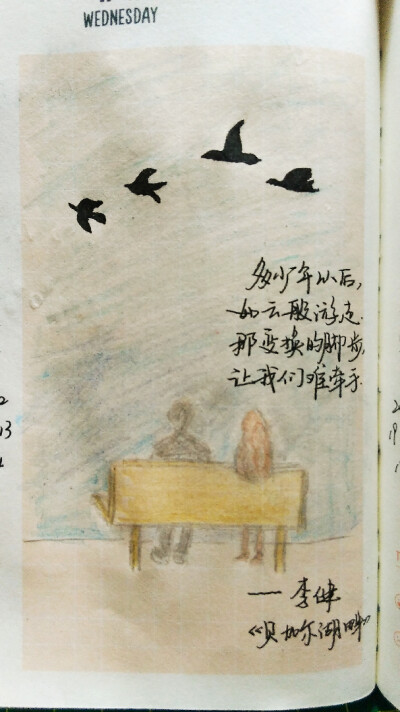 WEDNESDAY
多少年以后,
如云般游走.
那变换的脚步,
让我们难牵手.
—— 李健
《贝加尔湖畔》
13